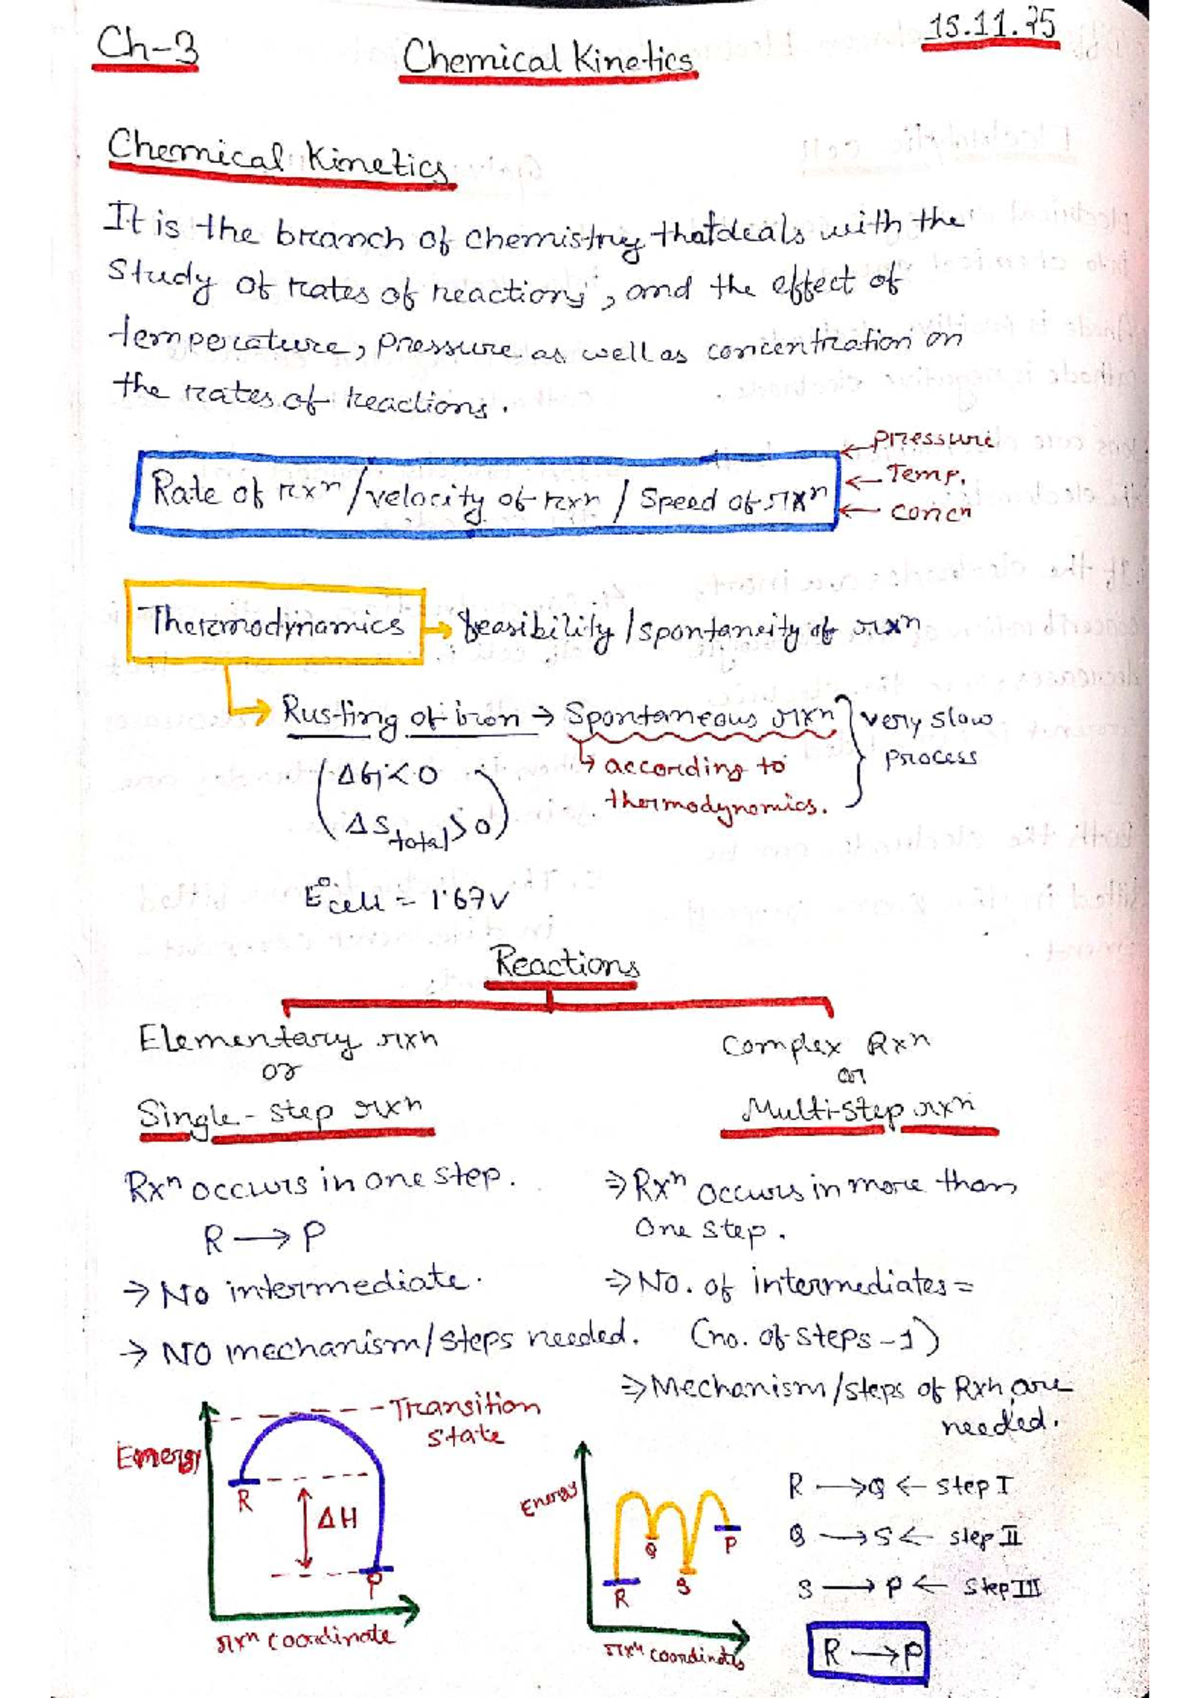 Ch-3
Chemical Kinetics
15.11.25
Chemical Kinetics
It is the branch of chemistry that deals with the
Study of rates of reactions, and the effect of
temperature, pressure as well as concentration on
the rates of reactions.
Rate of rxn / velocity of rxn / Speed of rxn
← Pressure
← Temp.
← concn
Thermodynamics → feasibility / spontaneity of rxn
→ Rusting of iron → Spontaneous rxn } very slow process
(ΔG < 0
ΔS total > 0)
↳ according to
thermodynamics.
E°cell = 1.67V
Reactions
Elementary rxn
or
Single-step rxn
Rxn occurs in one step.
R → P
→ No intermediate.
→ NO mechanism/steps needed.
Complex Rxn
or
Multi-step rxn
⇒ Rxn occurs in more than
one step.
⇒ No. of intermediates =
(no. of steps - 1)
⇒ Mechanism/steps of Rxn are
needed.
Transition
State
Energy
R
ΔH
P
rxn coordinate
Energy
R
Q
S
P
rxn coordinates
R → Q ← step I
Q → S ← step II
S → P ← step III
R → P